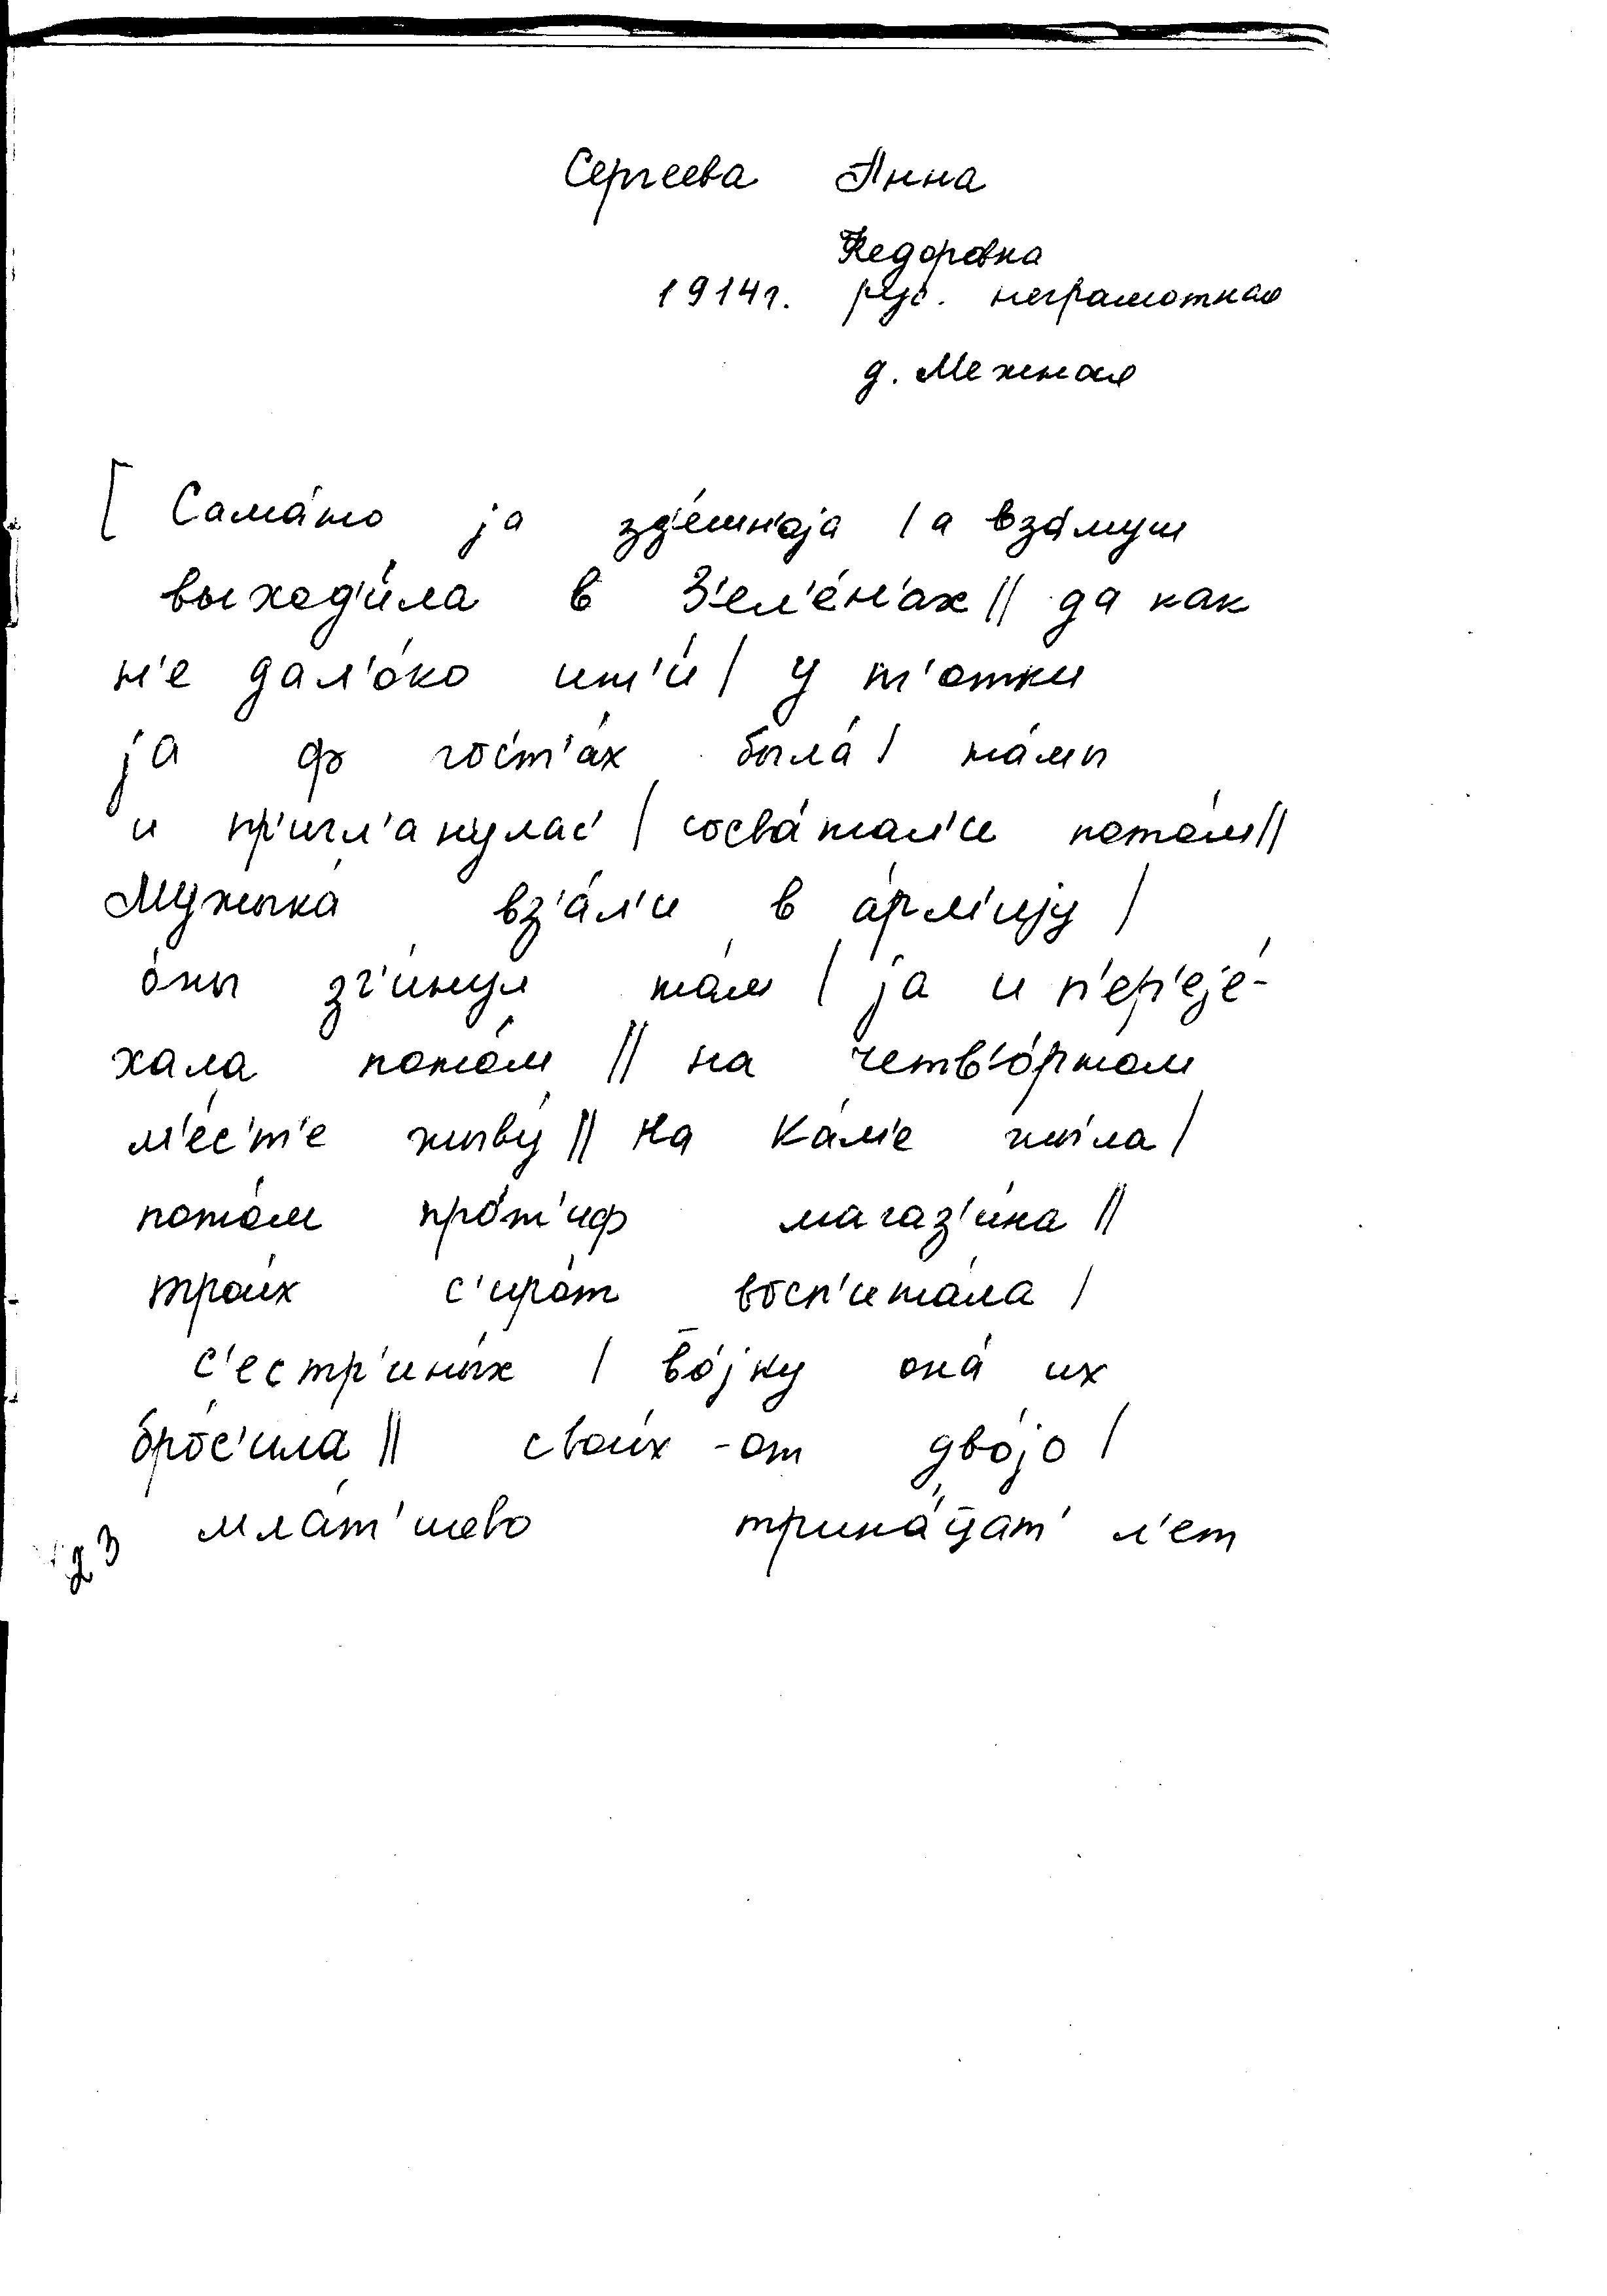 Сергеева Анна
Федоровна
1914г. рус. неграмотная
д. Межная
[ Сама́то ja зд'е́шн'аjа / а вза́муш
выход'и́ла в З'ел'е́н'ах // да как
н'е дал'о́ко ит'и́ / у т'отки
ja ф гос'т'а́х была́ / та́мы
и пр'игл'ану́лас' / сосва́тал'и пото́м //
Мужыка́ вз'а́л'и в а́рм'иjу /
о́ны зг'и́нул та́м / ja и п'ер'еjе́-
хала пото́м // на четв'о́ртом
м'е́с'т'е жыву́ // На Ка́м'е жы́ла /
пото́м про́т'иф магаз'и́на //
трои́х с'иро́т восп'ита́ла /
с'естр'ины́х / во́jку она́ их
бро́с'ила // свои́х -от дво́jо /
мла́т'шево трина́цат' л'ет
23